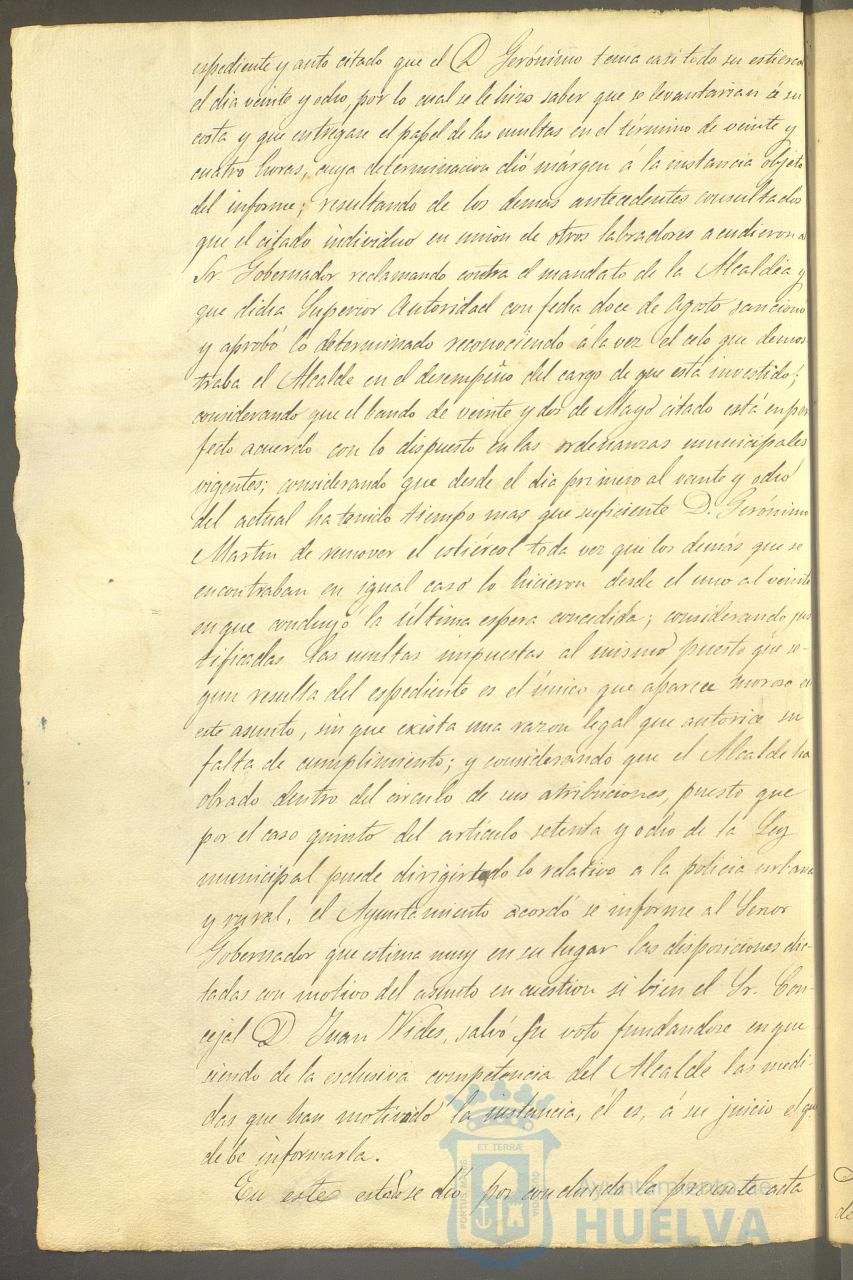 espediente y auto citado que el D Gerónimo tenia casi todo su estiercol
el dia veinte y ocho, por lo cual se le hizo saber que se levantarian á su
costa y que entregase el papel de las multas en el término de veinte y
cuatro horas, cuya determinacion dió márgen á la instancia objeto
del informe; resultando de los demas antecedentes consultados
que el citado individuo en union de otros labradores acudieron al
Sr. Gobernador reclamando contra el mandato de la Alcaldia y
que dicha Superior Autoridad con fecha doce de Agosto sancionó
y aprobó lo determinado reconociendo á la vez el celo que demos
traba el Alcalde en el desempeño del cargo de que está investido;
considerando que el bando de veinte y dos de Mayo citado está en per
fecto acuerdo con lo dispuesto en las ordenanzas municipales
vigentes; considerando que desde el dia primero al veinte y ocho
del actual ha tenido tiempo mas que suficiente D. Gerónimo
Martin de remover el estiércol toda vez que los demás que se
encontraban en igual caso lo hicieron desde el uno al veinte
en que concluyó la última espera concedida; considerando jus
tificadas las multas impuestas al mismo puesto que se-
gun resulta del espediente es el único que aparece moroso en
este asunto, sin que exista una razon legal que autorice su
falta de cumplimiento; y considerando que el Alcalde ha
obrado dentro del circulo de sus atribuciones, puesto que
por el caso quinto del artículo setenta y ocho de la Ley
municipal puede dirigir todo lo relativo a la policia urbana
y rural, el Ayuntamiento acordó se informe al Señor
Gobernador que estima muy en su lugar las disposiciones dic-
tadas con motivo del asunto en cuestion si bien el Sr. Con-
cejal D Juan Vides, salvó su voto fundandose en que
siendo de la esclusiva competencia del Alcalde las medi-
das que han motivado la instancia, él es, á su juicio el que
debe informarla.
En este estado se dió por concluida la presente acta
Ayuntamiento de
HUELVA
ET TERRÆ
PORTUS MARIS
CUSTODIA